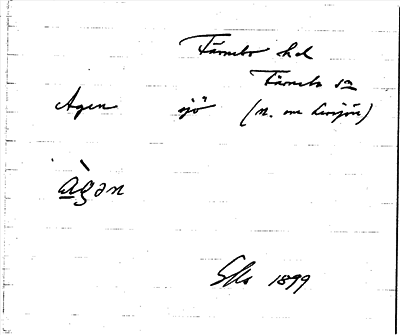 Färnebo hd
Färnebo sn
Agen sjö (n. om Lersjön)
àgǝn
1899